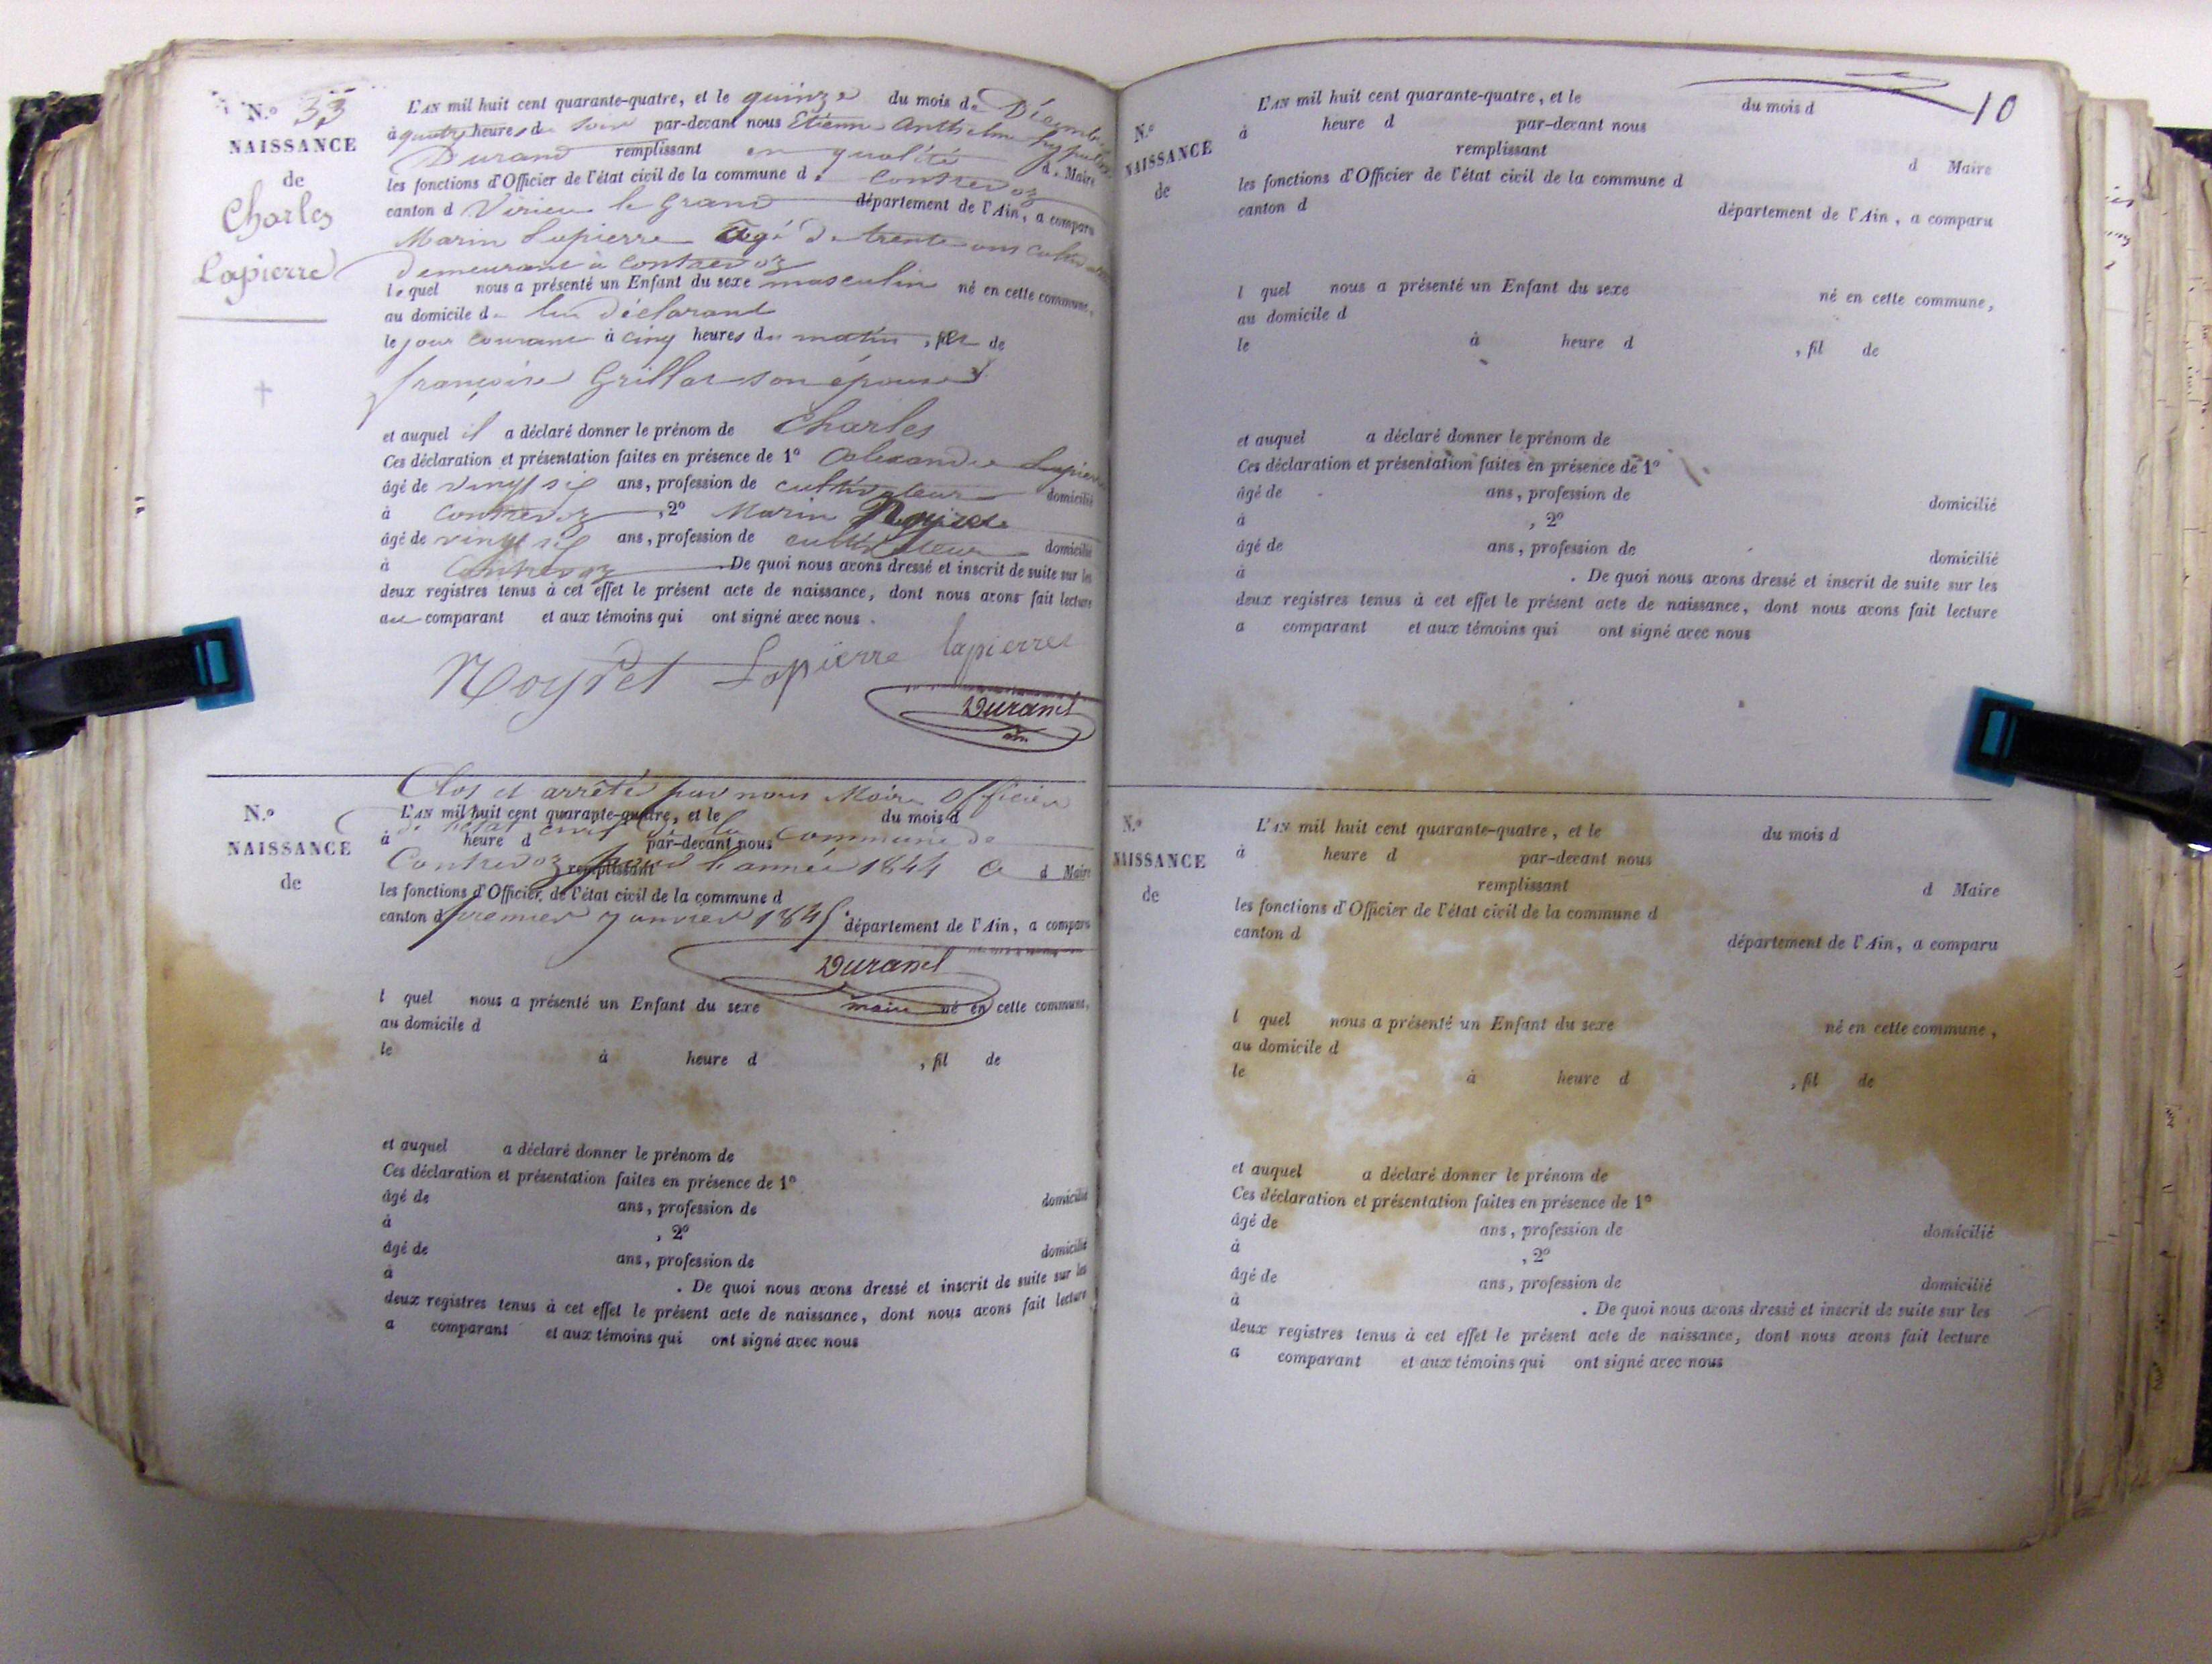 N.º 33
NAISSANCE
de
Charles
Lapierre
L'AN mil huit cent quarante-quatre, et le quinze du mois de Décembre
à quatre heures du soir par-devant nous Etienne Anthelme hypolite
Durand remplissant en qualité de Maire
les fonctions d'Officier de l'état civil de la commune de Contrevoz
canton de Virieu le Grand département de l'Ain, a comparu
Marin Lapierre Agé de trente ans cultivateur
demeurant à Contrevoz
lequel nous a présenté un Enfant du sexe masculin né en cette commune,
au domicile de lui déclarant
le jour courant à cinq heures du matin, fils de
françoise Grillat son épouse
et auquel il a déclaré donner le prénom de Charles
Ces déclaration et présentation faites en présence de 1º Alexandre Lapierre
âgé de vingt six ans, profession de cultivateur domicilié
à Contrevoz, 2º Marin Noyret
âgé de vingt six ans, profession de cultivateur domicilié
à Contrevoz. De quoi nous avons dressé et inscrit de suite sur les
deux registres tenus à cet effet le présent acte de naissance, dont nous avons fait lecture
au comparant et aux témoins qui ont signé avec nous.
Noyret Lapierre lapierre
Durand
Clos et arrêté par nous Maire Officier
de l'état civil de la Commune de
Contrevoz pour l'année 1844 Ce
premier Janvier 1845.
Durand
maire
N.º
NAISSANCE
de
L'AN mil huit cent quarante-quatre, et le du mois d
à heure d par-devant nous
remplissant d Maire
les fonctions d'Officier de l'état civil de la commune d
canton d département de l'Ain, a comparu
l quel nous a présenté un Enfant du sexe né en cette commune,
au domicile d
le à heure d , fil de
et auquel a déclaré donner le prénom de
Ces déclaration et présentation faites en présence de 1º
âgé de ans, profession de domicilié
à , 2º
âgé de ans, profession de domicilié
à . De quoi nous avons dressé et inscrit de suite sur les
deux registres tenus à cet effet le présent acte de naissance, dont nous avons fait lecture
a comparant et aux témoins qui ont signé avec nous
10
N.º
NAISSANCE
de
L'AN mil huit cent quarante-quatre, et le du mois d
à heure d par-devant nous
remplissant d Maire
les fonctions d'Officier de l'état civil de la commune d
canton d département de l'Ain, a comparu
l quel nous a présenté un Enfant du sexe né en cette commune,
au domicile d
le à heure d , fil de
et auquel a déclaré donner le prénom de
Ces déclaration et présentation faites en présence de 1º
âgé de ans, profession de domicilié
à , 2º
âgé de ans, profession de domicilié
à . De quoi nous avons dressé et inscrit de suite sur les
deux registres tenus à cet effet le présent acte de naissance, dont nous avons fait lecture
a comparant et aux témoins qui ont signé avec nous
N.º
NAISSANCE
de
L'AN mil huit cent quarante-quatre, et le du mois d
à heure d par-devant nous
remplissant d Maire
les fonctions d'Officier de l'état civil de la commune d
canton d département de l'Ain, a comparu
l quel nous a présenté un Enfant du sexe né en cette commune,
au domicile d
le à heure d , fil de
et auquel a déclaré donner le prénom de
Ces déclaration et présentation faites en présence de 1º
âgé de ans, profession de domicilié
à , 2º
âgé de ans, profession de domicilié
à . De quoi nous avons dressé et inscrit de suite sur les
deux registres tenus à cet effet le présent acte de naissance, dont nous avons fait lecture
a comparant et aux témoins qui ont signé avec nous